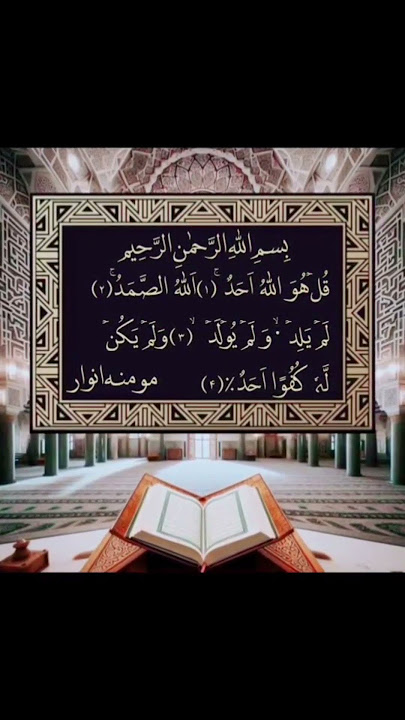 بِسمِ اللهِ الرَّحمٰنِ الرَّحِیمِ
قُلۡ هُوَ اللهُ اَحَدٌ ۚ (۱) اَللهُ الصَّمَدُ ۚ (۲)
لَمۡ یَلِدۡ ۬ ۙ وَ لَمۡ یُوۡلَدۡ ۙ (۳) وَلَمۡ یَکُنۡ
لَّهٗ کُفُوًا اَحَدٌ٪ (۴) مومنہ انوار